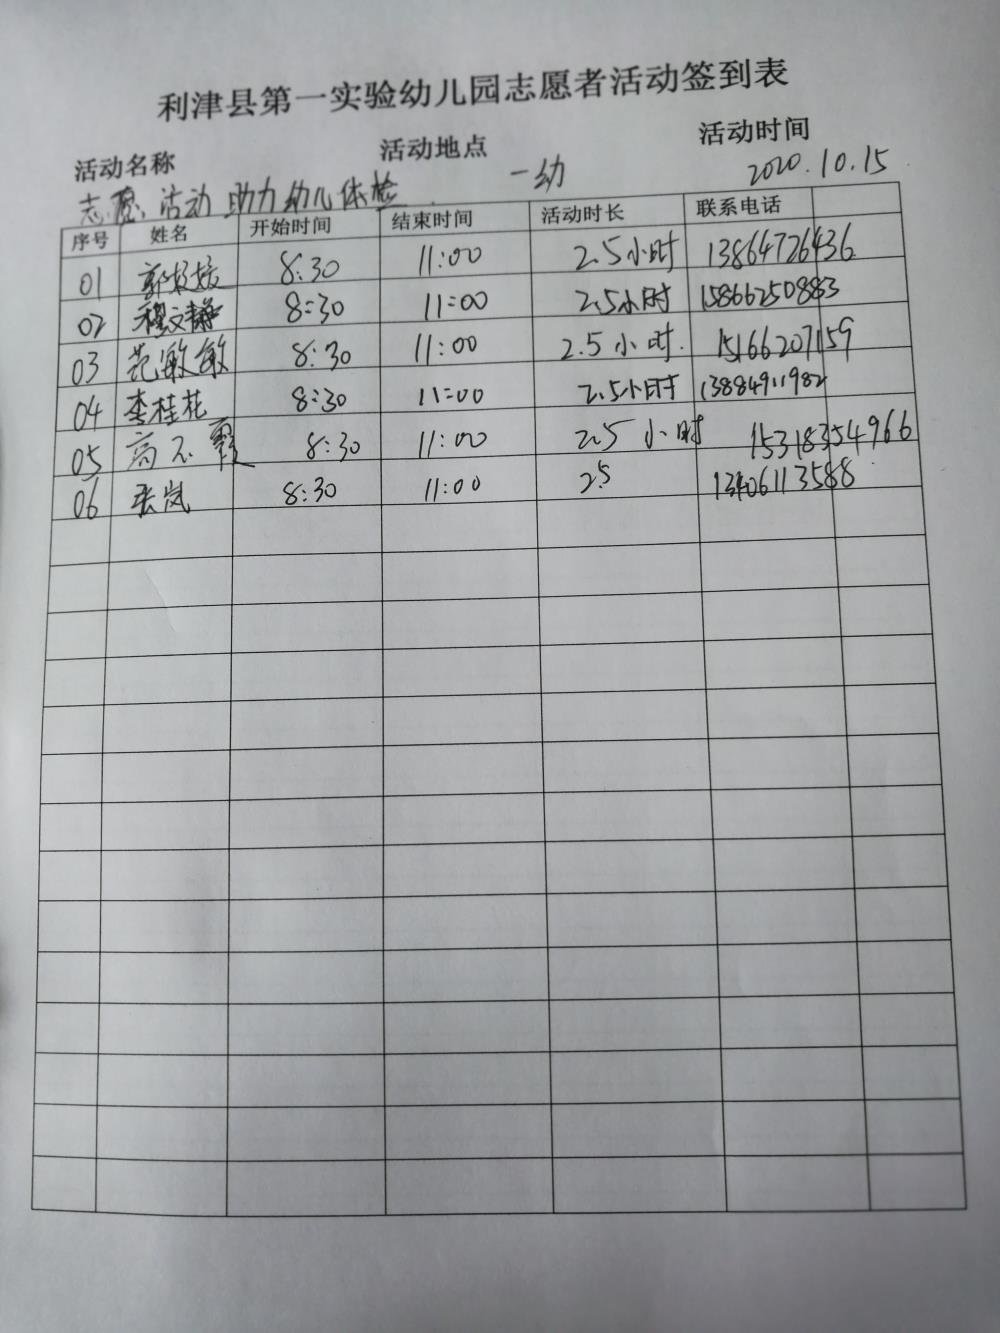 利津县第一实验幼儿园志愿者活动签到表
活动名称 活动地点 活动时间
志愿活动助力幼儿体检 一幼 2020.10.15
序号 姓名 开始时间 结束时间 活动时长 联系电话
01 郭 8:30 11:00 2.5小时 13864726436
02 穆文静 8:30 11:00 2.5小时 15866250883
03 范敏敏 8:30 11:00 2.5小时. 15166207159
04 李桂花 8:30 11:00 2.5小时 13884911982
05 高 霞 8:30 11:00 2.5小时 15318354966
06 张岚 8:30 11:00 2.5 13406113588